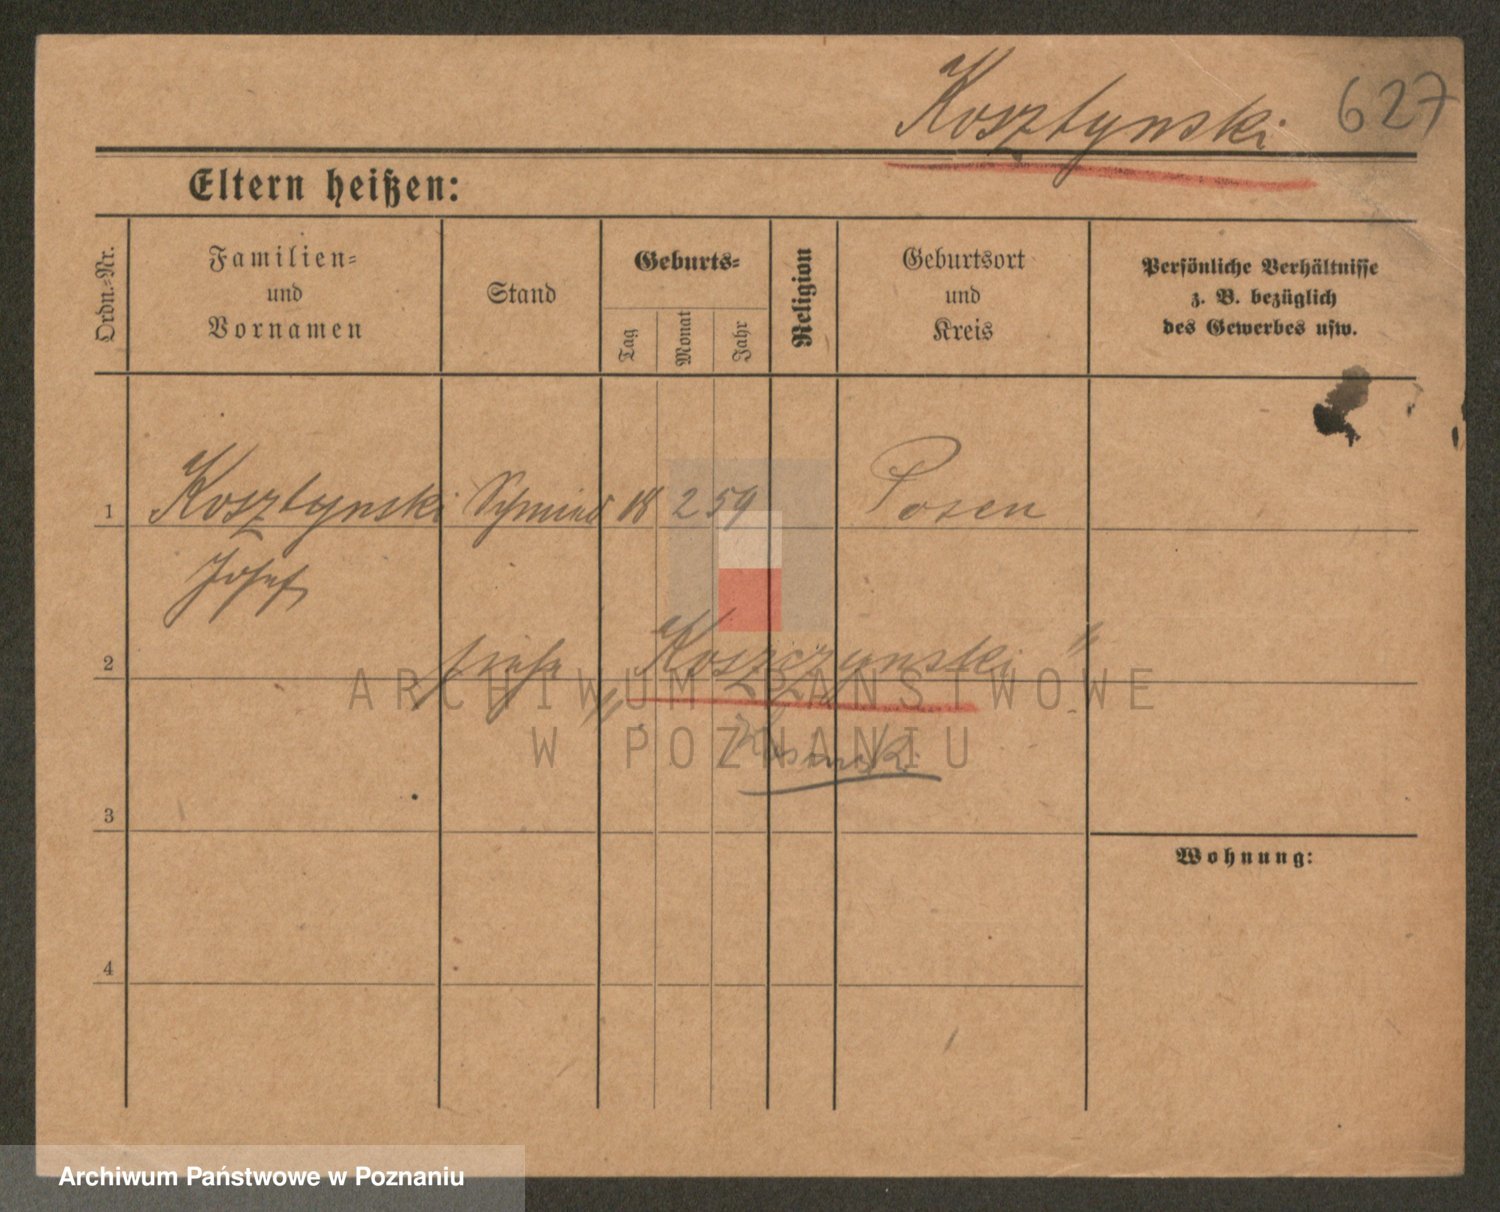 Kosztynski 627
Eltern heißen:
Ordn.-Nr.
Familien-
und
Vornamen
Stand
Geburts-
Tag
Monat
Jahr
Religion
Geburtsort
und
Kreis
Persönliche Verhältnisse
z. B. bezüglich
des Gewerbes usw.
1 Kosztynski Schmied 18 2 59 Posen
Josef
2 siehe „Koszczynski"
3
Wohnung:
4
ARCHIWUM PAŃSTWOWE
W POZNANIU
Archiwum Państwowe w Poznaniu